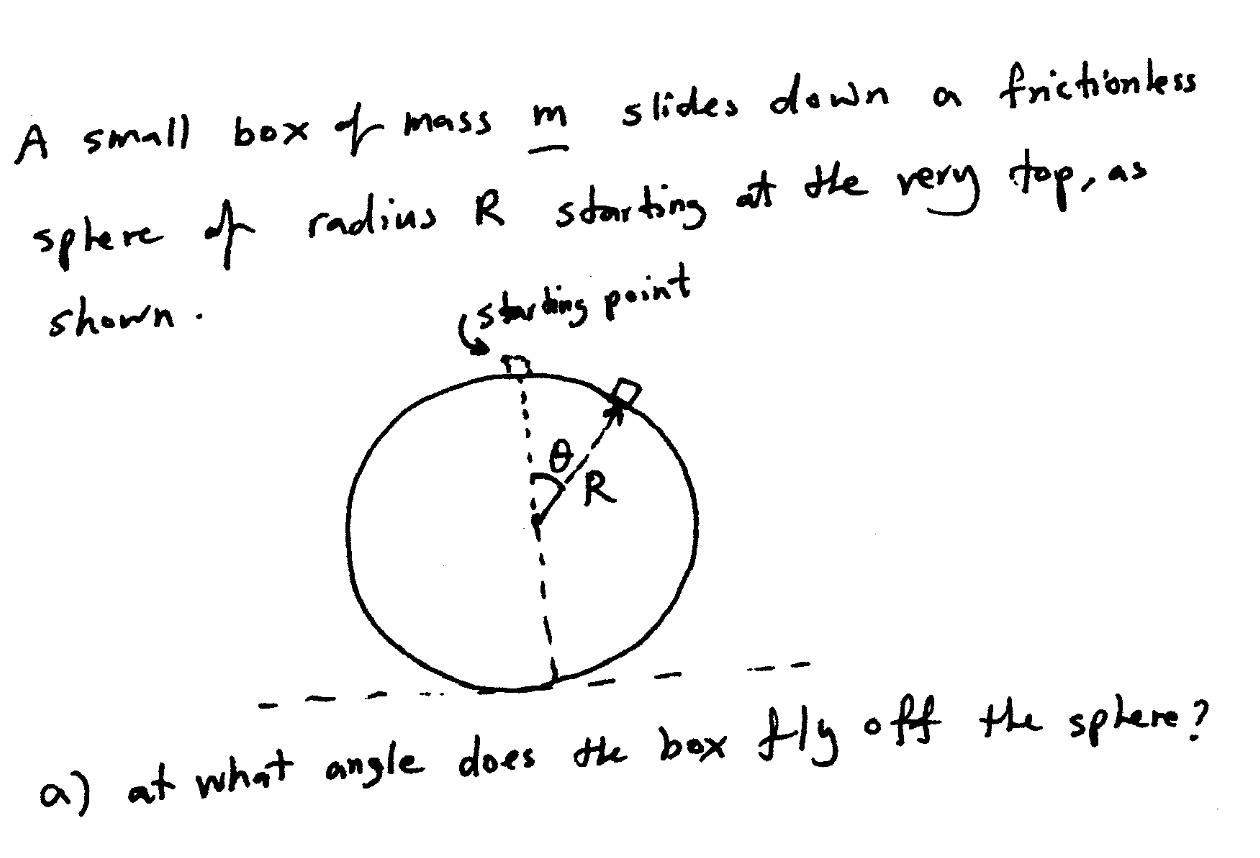 A small box of mass m slides down a frictionless
sphere of radius R starting at the very top, as
shown.
starting point
θ
R
a) at what angle does the box fly off the sphere?